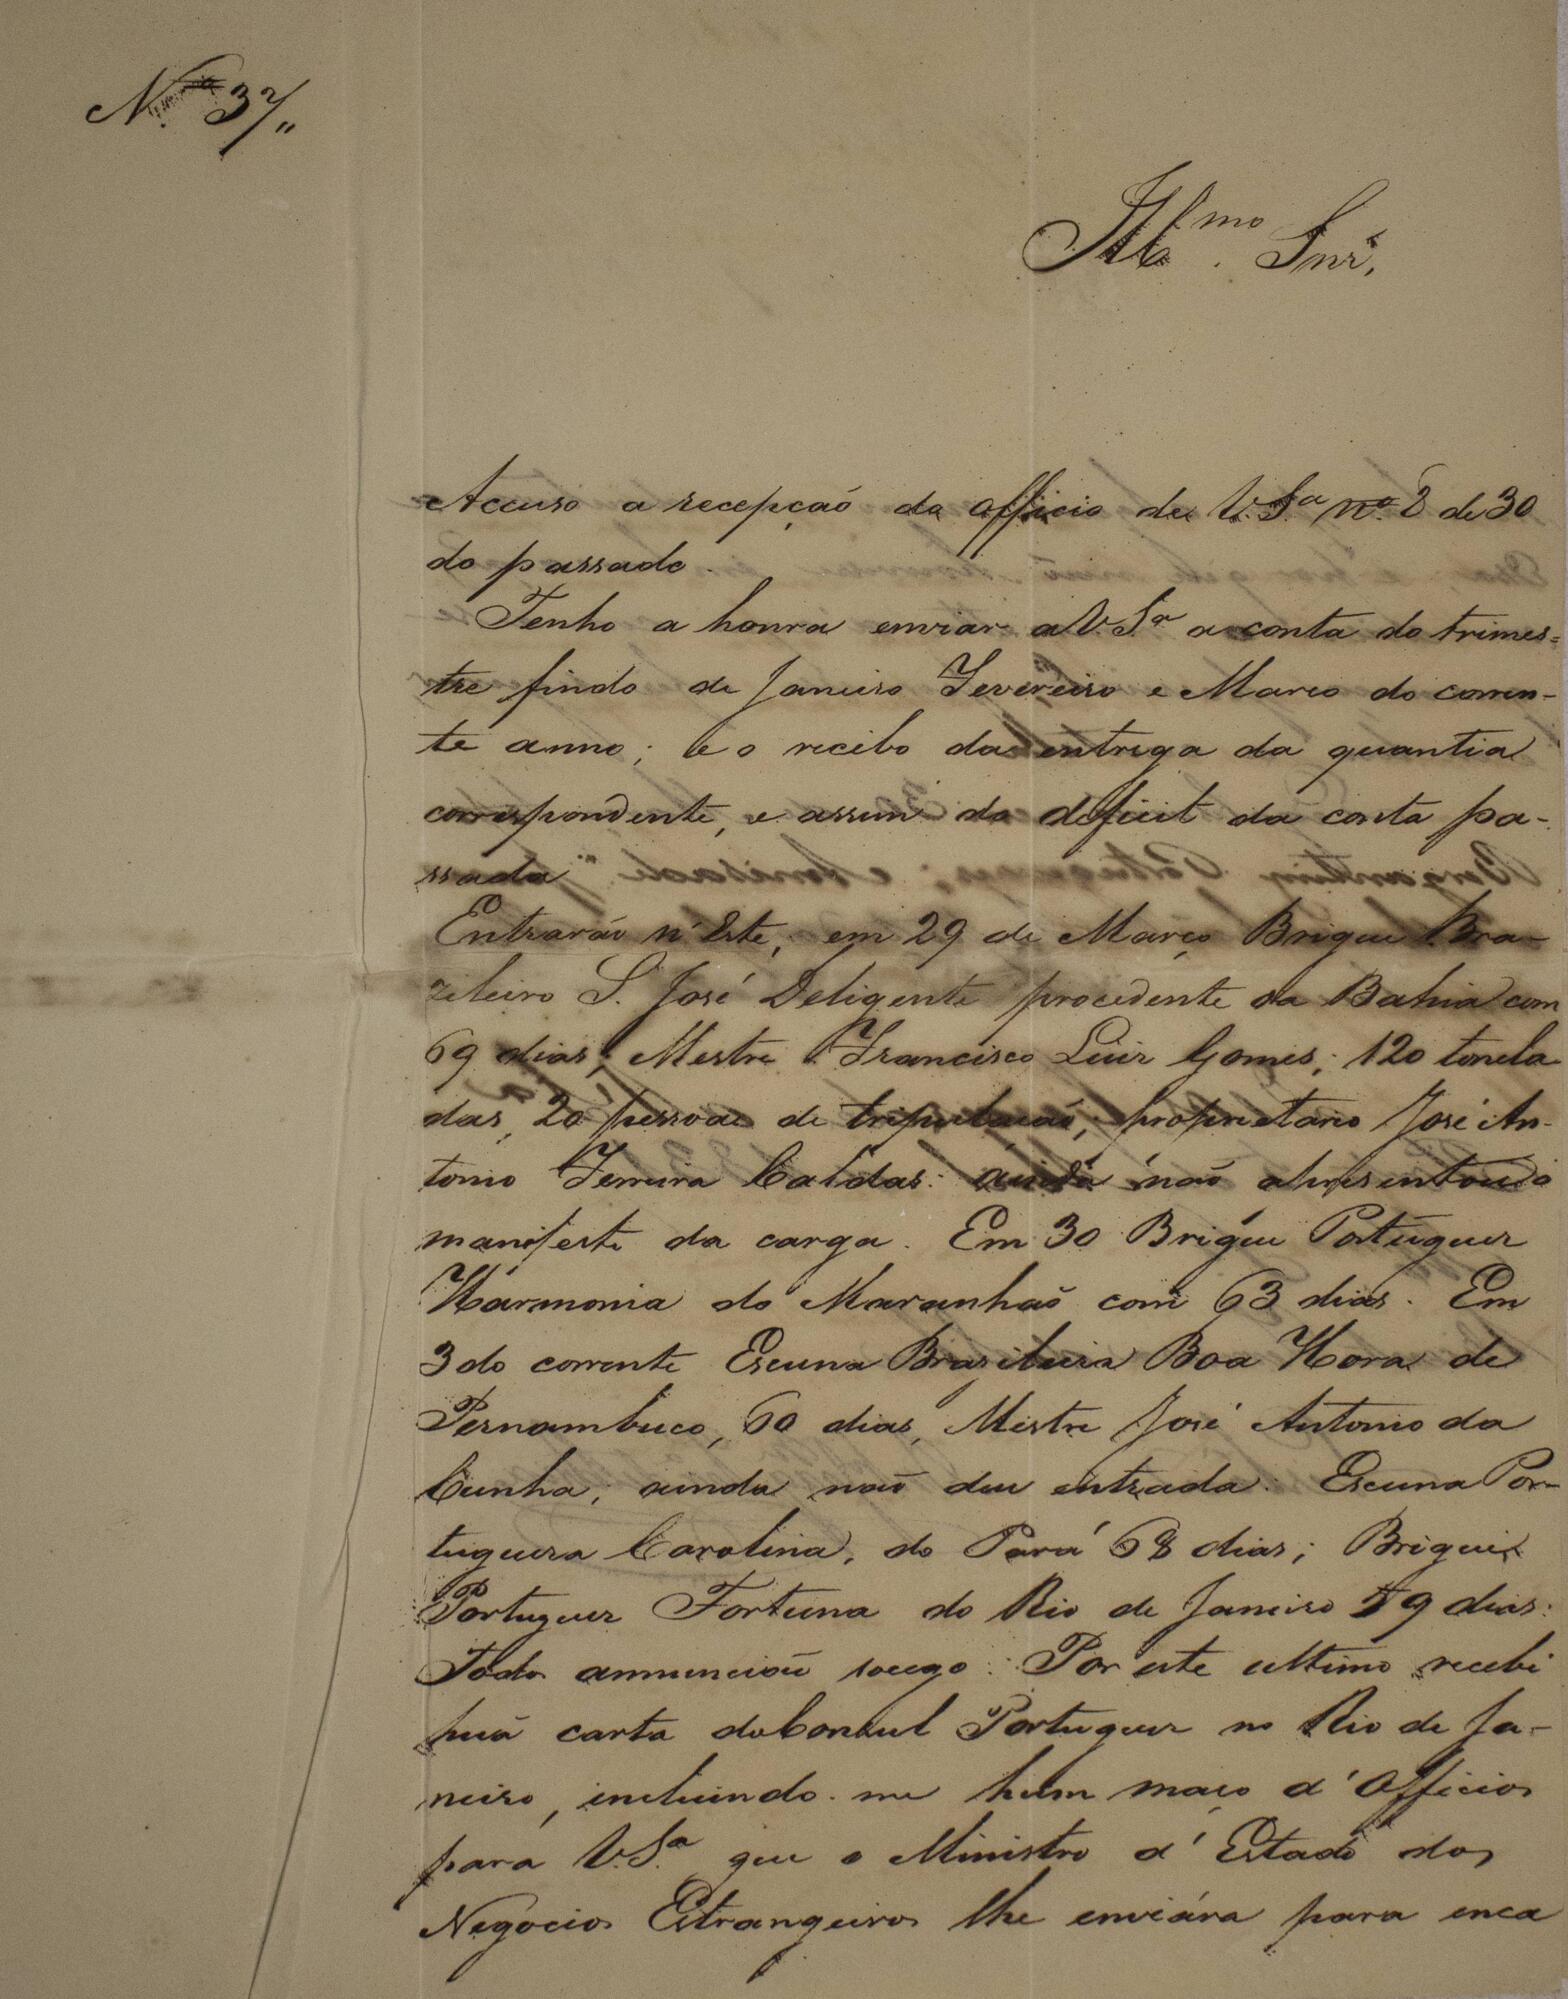 N.º 37,,
Ill.mo Snr.
Accuso a recepçaõ do officio de V.Sa no. 2 de 30
do passado.
Tenho a honra enviar a V.Sa a conta do trimes=
tre findo de Janeiro Fevereiro e Março do corren-
te anno; e o recibo da entrega da quantia
correspondente, e assim do deficit da conta pa-
ssada
Entraraõ n'Este, em 29 de Março Brigue Bra-
zileiro S. José Deligente procedente da Bahia com
69 dias; Mestre Francisco Luiz Gomes; 120 tonela
das, 20 pessoas de tripulaçaõ; proprietario José An-
tonio Ferreira Caldas: ainda naõ apresentou o
manifesto da carga. Em 30 Brigue Portuguez
Harmonia do Maranhaõ com 63 dias. Em
3 do corrente Escuna Brazileira Boa Hora de
Pernambuco, 60 dias, Mestre José Antonio da
Cunha; ainda naõ deu entrada: Escuna Por-
tugueza Carolina, do Pará 68 dias; Brigue
Portuguez Fortuna do Rio de Janeiro 59 dias:
Todos annunciaõ socego: Por este ultimo recebi
huã carta do Consul Portuguez no Rio de Ja-
neiro, incluindo-me hum maço d'Officios
para V.Sa que o Ministro d'Estado dos
Negocios Estrangeiros lhe enviára para enca